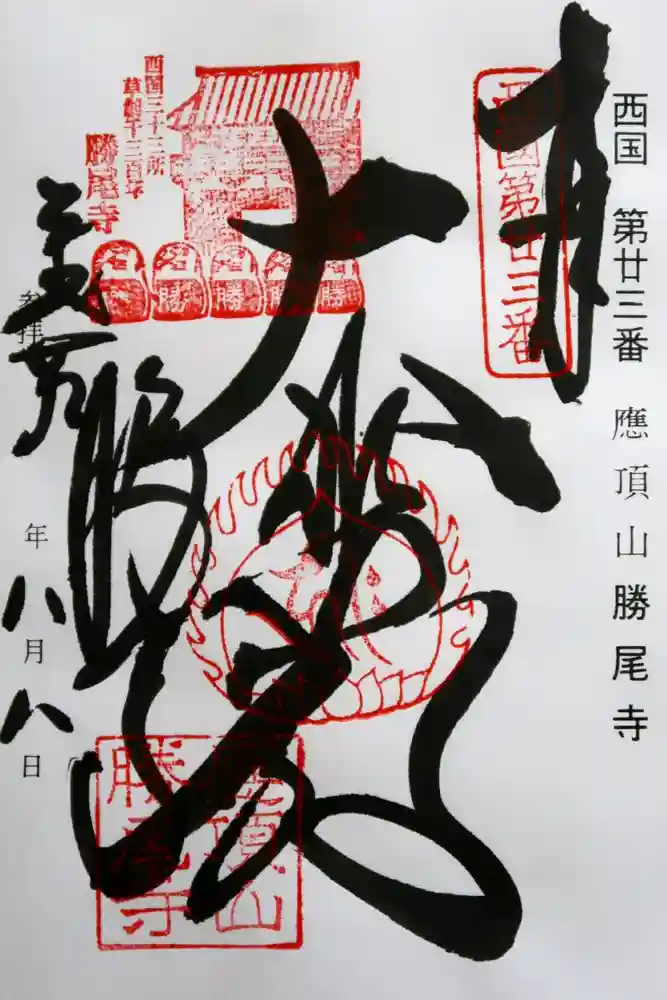 西国 第廿三番 應頂山 勝尾寺
奉
西國第廿三番
大
西国三十三所
草創千三百年
勝尾寺
勝 勝 勝 勝 勝
應頂山
勝尾寺
勝尾寺
参拝
年 八月八日